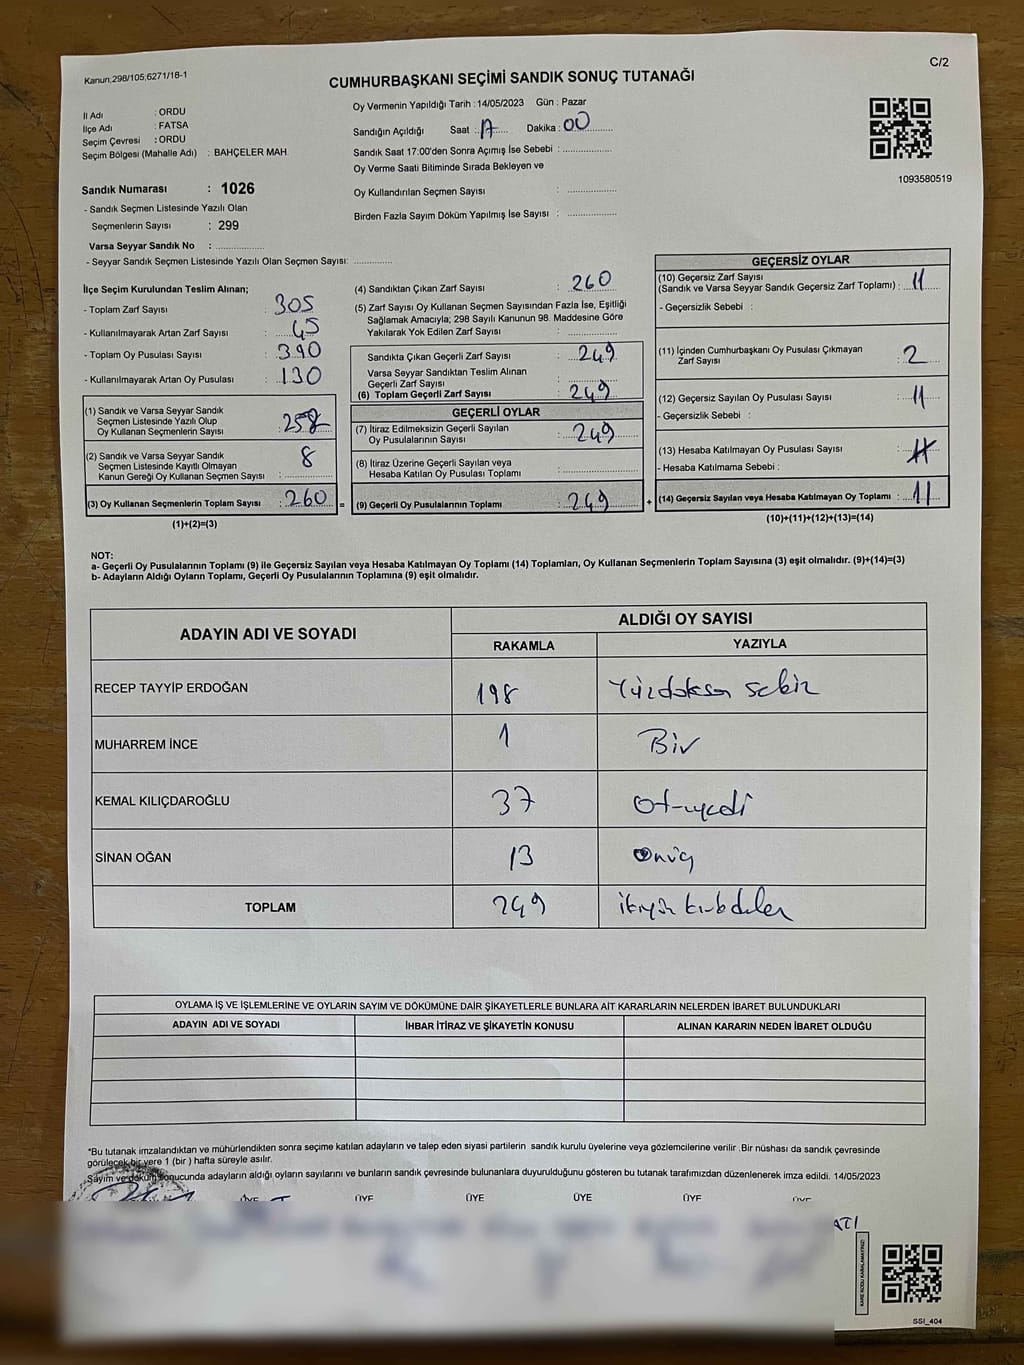 Kanun.298/105,6271/18-1
C/2
CUMHURBAŞKANI SEÇİMİ SANDIK SONUÇ TUTANAĞI
İl Adı : ORDU
İlçe Adı : FATSA
Seçim Çevresi : ORDU
Seçim Bölgesi (Mahalle Adı) : BAHÇELER MAH.
Sandık Numarası : 1026
- Sandık Seçmen Listesinde Yazılı Olan
Seçmenlerin Sayısı : 299
Varsa Seyyar Sandık No : ..................
- Seyyar Sandık Seçmen Listesinde Yazılı Olan Seçmen Sayısı: ..............
Oy Vermenin Yapıldığı Tarih : 14/05/2023 Gün : Pazar
Sandığın Açıldığı Saat : 17 Dakika : 00
Sandık Saat 17:00'den Sonra Açımış İse Sebebi : ..................
Oy Verme Saati Bitiminde Sırada Bekleyen ve
Oy Kullandırılan Seçmen Sayısı : ..................
Birden Fazla Sayım Döküm Yapılmış İse Sayısı : ..................
1093580519
İlçe Seçim Kurulundan Teslim Alınan;
- Toplam Zarf Sayısı : 305
- Kullanılmayarak Artan Zarf Sayısı : 45
- Toplam Oy Pusulası Sayısı : 390
- Kullanılmayarak Artan Oy Pusulası : 130
(1) Sandık ve Varsa Seyyar Sandık
Seçmen Listesinde Yazılı Olup
Oy Kullanan Seçmenlerin Sayısı : 258
(2) Sandık ve Varsa Seyyar Sandık
Seçmen Listesinde Kayıtlı Olmayan
Kanun Gereği Oy Kullanan Seçmen Sayısı : 8
(3) Oy Kullanan Seçmenlerin Toplam Sayısı : 260 =
(1)+(2)=(3)
(4) Sandıktan Çıkan Zarf Sayısı : 260
(5) Zarf Sayısı Oy Kullanan Seçmen Sayısından Fazla İse, Eşitliği
Sağlamak Amacıyla; 298 Sayılı Kanunun 98. Maddesine Göre
Yakılarak Yok Edilen Zarf Sayısı : ..............
Sandıkta Çıkan Geçerli Zarf Sayısı : 249
Varsa Seyyar Sandıktan Teslim Alınan
Geçerli Zarf Sayısı : ..............
(6) Toplam Geçerli Zarf Sayısı : 249
GEÇERLİ OYLAR
(7) İtiraz Edilmeksizin Geçerli Sayılan
Oy Pusulalarının Sayısı : 249
(8) İtiraz Üzerine Geçerli Sayılan veya
Hesaba Katılan Oy Pusulası Toplamı : ..............
(9) Geçerli Oy Pusulalarının Toplamı : 249 +
GEÇERSİZ OYLAR
(10) Geçersiz Zarf Sayısı
(Sandık ve Varsa Seyyar Sandık Geçersiz Zarf Toplamı) : 11
- Geçersizlik Sebebi :
(11) İçinden Cumhurbaşkanı Oy Pusulası Çıkmayan
Zarf Sayısı : 2
(12) Geçersiz Sayılan Oy Pusulası Sayısı : 11
- Geçersizlik Sebebi :
(13) Hesaba Katılmayan Oy Pusulası Sayısı :
- Hesaba Katılmama Sebebi :
(14) Geçersiz Sayılan veya Hesaba Katılmayan Oy Toplamı : 11
(10)+(11)+(12)+(13)=(14)
NOT:
a- Geçerli Oy Pusulalarının Toplamı (9) ile Geçersiz Sayılan veya Hesaba Katılmayan Oy Toplamı (14) Toplamları, Oy Kullanan Seçmenlerin Toplam Sayısına (3) eşit olmalıdır. (9)+(14)=(3)
b- Adayların Aldığı Oyların Toplamı, Geçerli Oy Pusulalarının Toplamına (9) eşit olmalıdır.
ADAYIN ADI VE SOYADI ALDIĞI OY SAYISI
RAKAMLA YAZIYLA
RECEP TAYYİP ERDOĞAN 198 Yüzdoksan sekiz
MUHARREM İNCE 1 Bir
KEMAL KILIÇDAROĞLU 37 otuzyedi
SİNAN OĞAN 13 Onüç
TOPLAM 249 ikiyüz kırkdokuz
OYLAMA İŞ VE İŞLEMLERİNE VE OYLARIN SAYIM VE DÖKÜMÜNE DAİR ŞİKAYETLERLE BUNLARA AİT KARARLARIN NELERDEN İBARET BULUNDUKLARI
ADAYIN ADI VE SOYADI İHBAR İTİRAZ VE ŞİKAYETİN KONUSU ALINAN KARARIN NEDEN İBARET OLDUĞU
*Bu tutanak imzalandıktan ve mühürlendikten sonra seçime katılan adayların ve talep eden siyasi partilerin sandık kurulu üyelerine veya gözlemcilerine verilir .Bir nüshası da sandık çevresinde
görülecek bir yere 1 (bir ) hafta süreyle asılır.
Sayım ve döküm sonucunda adayların aldığı oyların sayılarını ve bunların sandık çevresinde bulunanlara duyurulduğunu gösteren bu tutanak tarafımızdan düzenlenerek imza edildi. 14/05/2023
ÜYE ÜYE ÜYE ÜYE ÜYE ÜYE
KARE KODU KARALAMAYINIZ!
SSI_404